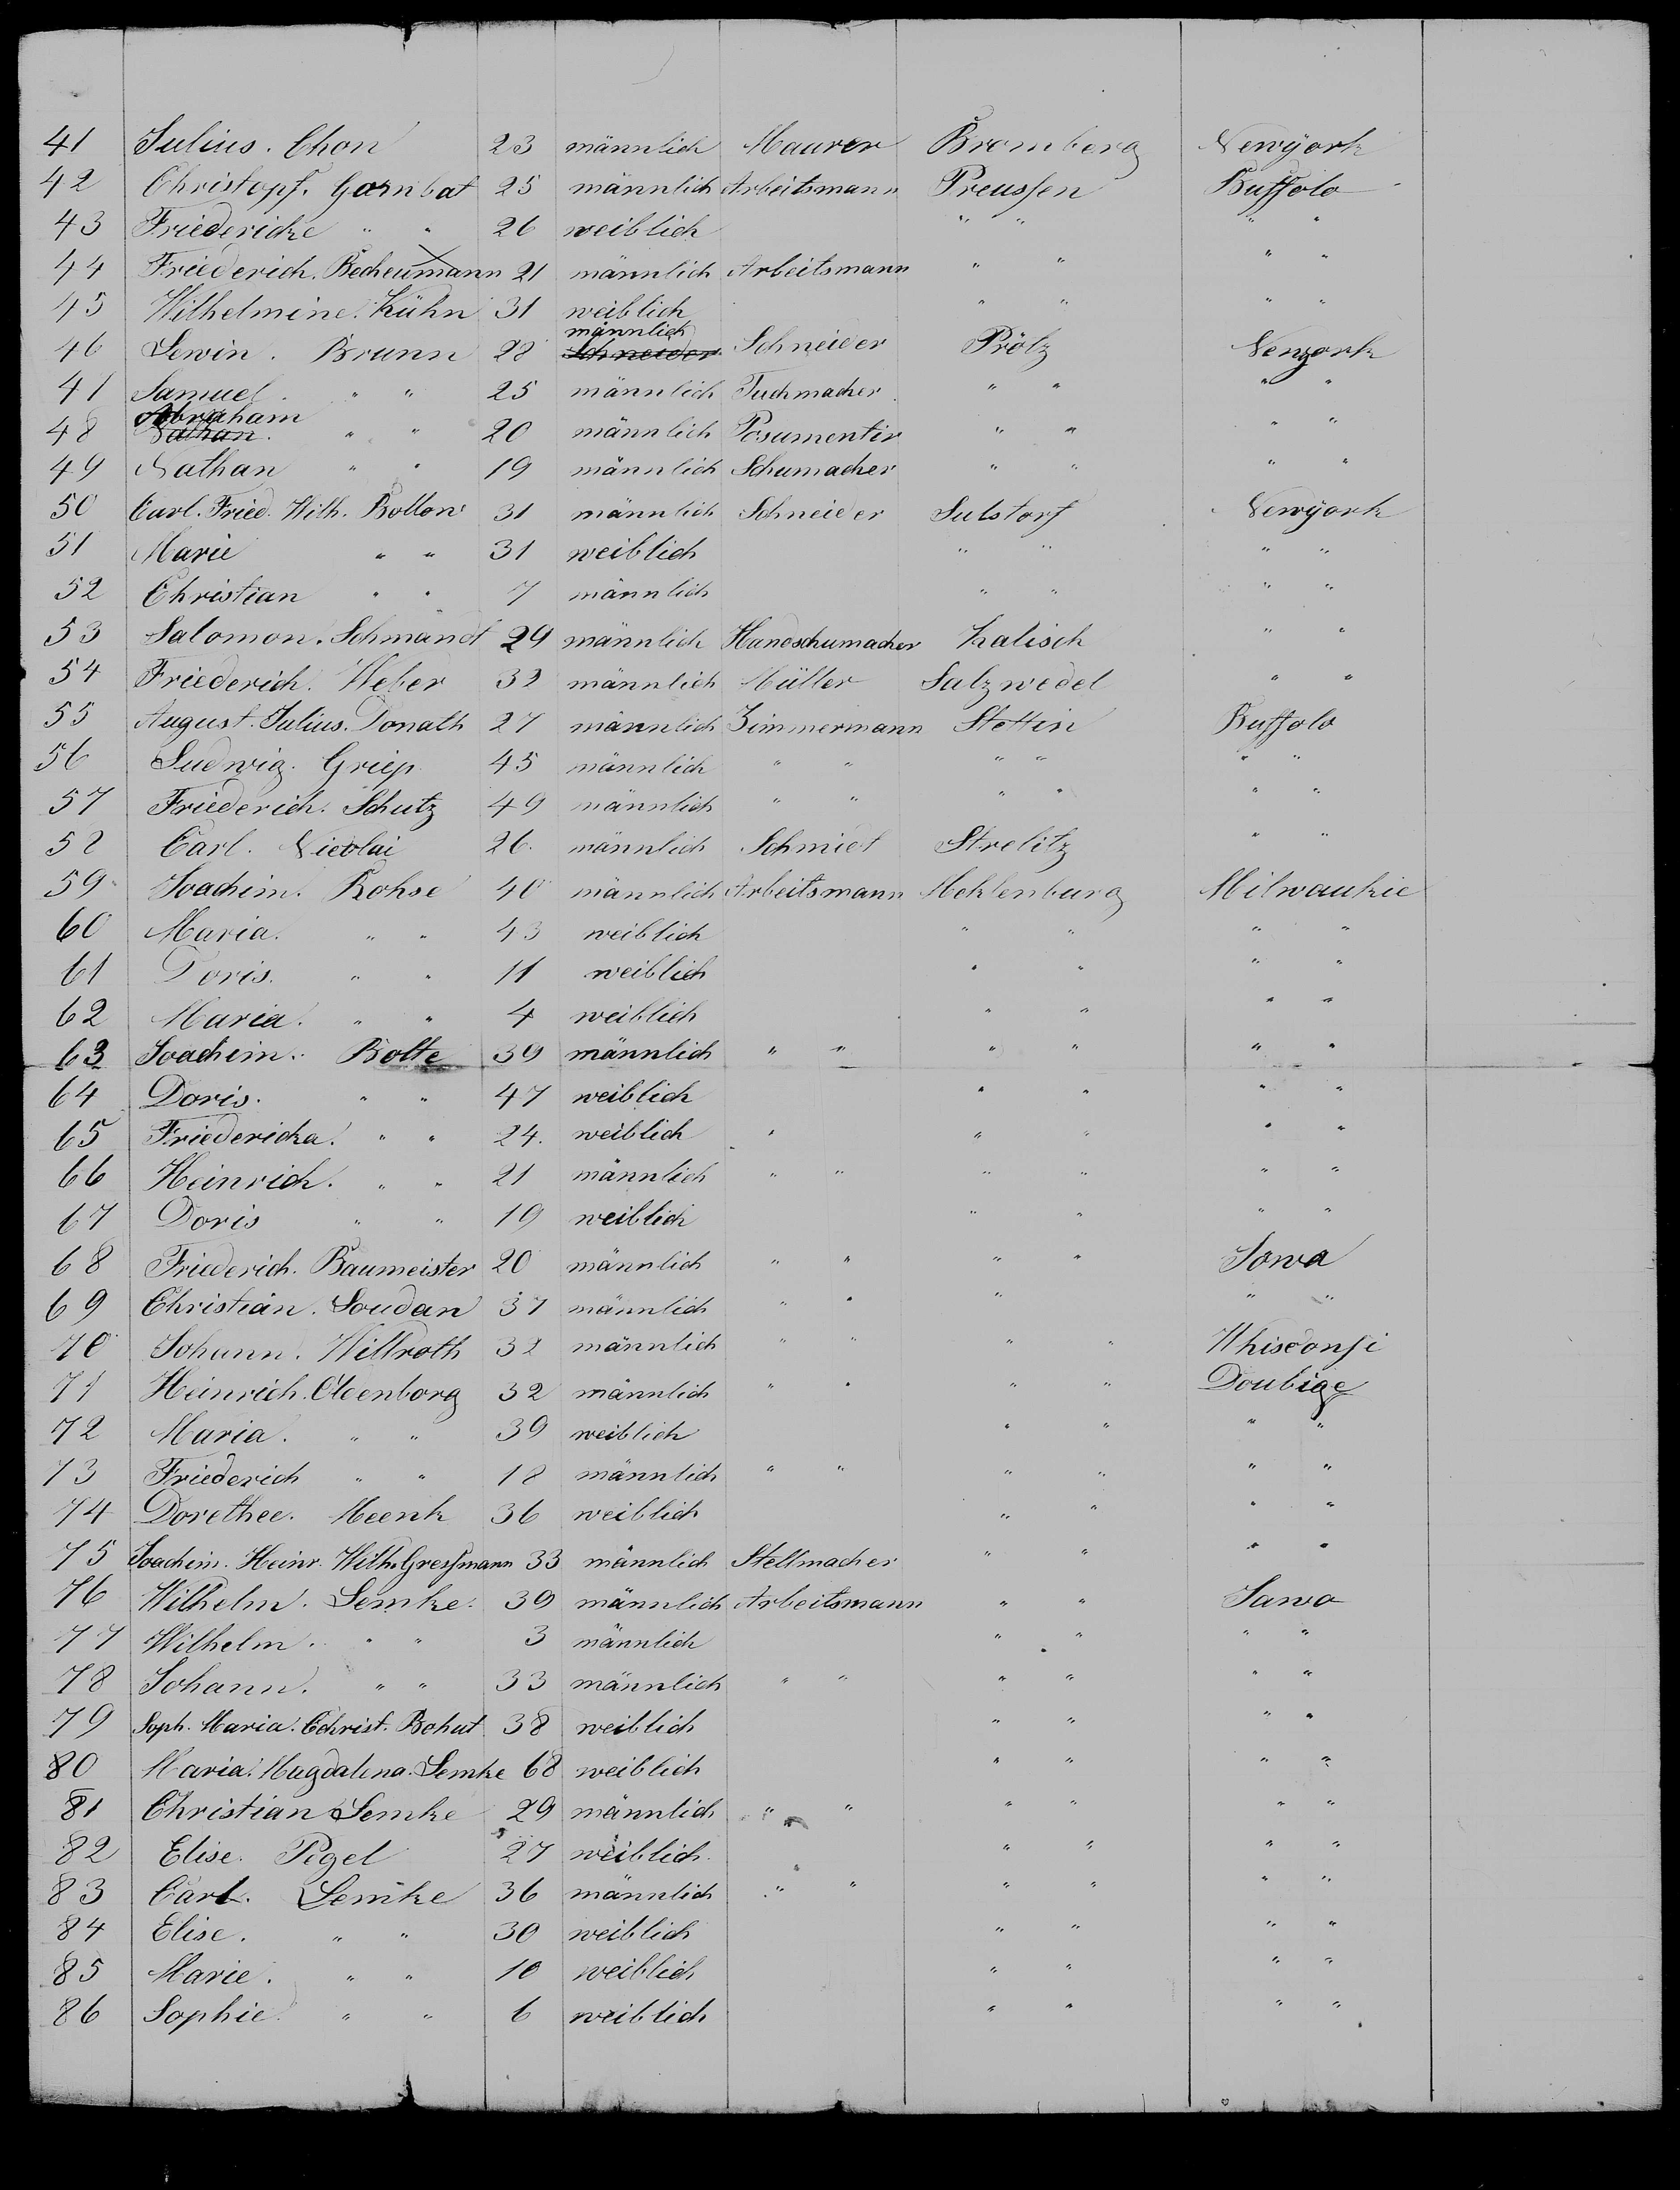 41 Julius. Chon 23 männlich Maurer Bromberg Newÿork
42 Christopf. Gornbat 25 männlich Arbeitsmann Preussen Buffolo
43 Friedericke " " 26 weiblich " " " "
44 Friederich. Becheumann 21 männlich Arbeitsmann " " " "
45 Wilhelmine. Kühn 31 weiblich " " " "
46 Lewin. Brunn 28 männlich Schneider Schneider Prölz Newyork
41 Samuel. " " 25 männlich Tuchmacher " " " "
48 Abraham Nathan. " " 20 männlich Posumentir " " " "
49 Nathan " " 19 männlich Schumacher " " " "
50 Carl. Fried. Wilh. Bollow 31 männlich Schneider Sulstorf Newÿork
51 Marie " " 31 weiblich " " " "
52 Christian " " 7 männlich " " " "
53 Salomon. Schmandt 29 männlich Handschumacher Kalisch " "
54 Friederich. Weber 32 männlich Müller Salzwedel " "
55 August. Julius. Donath 27 männlich Zimmermann Stettin Buffolo
56 Ludwig. Griep 45 männlich " " " " " "
57 Friederich. Schutz 49 männlich " " " " " "
58 Carl. Nicolai 26. männlich Schmidt Strelitz " "
59 Joachim. Rohse 40 männlich Arbeitsmann Meklenburg Milwaukie
60 Maria. " " 43 weiblich " " " "
61 Doris. " " 11 weiblich " " " "
62 Maria. " " 4 weiblich " " " "
63 Joachim. Bolte 39 männlich " " " " " "
64 Doris. " " 47 weiblich " " " "
65 Friedericka. " " 24. weiblich " " " " "
66 Heinrich. " " 21 männlich " " " " " "
67 Doris " " 19 weiblich " " " "
68 Friederich. Baumeister 20 männlich " " " " Iowa
69 Christian. Soudan 37 männlich " " " " "
70 Johann. Willroth 32 männlich " " " " Whisconsi
71 Heinrich. Oldenborg 32 männlich " " " " Doubige
72 Maria. " " 39 weiblich " " " "
73 Friederich " " 18 männlich " " " " " "
74 Dorethee. Meenk 36 weiblich " " " "
75 Joachim. Heinr. Wilh. Gressmann 33 männlich Stellmacher " " " "
76 Wilhelm. Lemke. 39 männlich Arbeitsmann " " Iawo
77 Wilhelm. " " 3 männlich " " " "
78 Johann. " " 33 männlich " " " " " "
79 Soph. Maria. Christ. Bohut 38 weiblich " " " "
80 Maria. Magdalena. Lemke 68 weiblich " " " "
81 Christian Lemke 29 männlich " " " " " "
82 Elise. Pegel 27 weiblich. " " " "
83 Carl. Lemke 36 männlich " " " " " "
84 Elise. " " 30 weiblich " " " "
85 Marie. " " 10 weiblich " " " "
86 Sophie. " " 6 weiblich " " " "